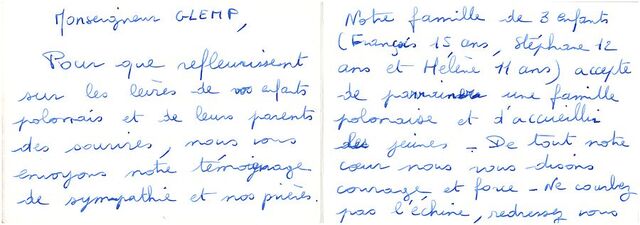 Monseigneur GLEMP,
Pour que refleurissent
sur les lèvres de vos enfants
polonais et de leurs parents
des sourires, nous vous
envoyons notre témoignage
de sympathie et nos prières.
Notre famille de 3 enfants
(François 15 ans, Stéphane 12
ans et Hélène 11 ans) accepte
de parrainer une famille
polonaise et d'accueillir
des jeunes - De tout notre
cœur nous vous disons
courage et force - Ne courbez
pas l'échine, redressez vous